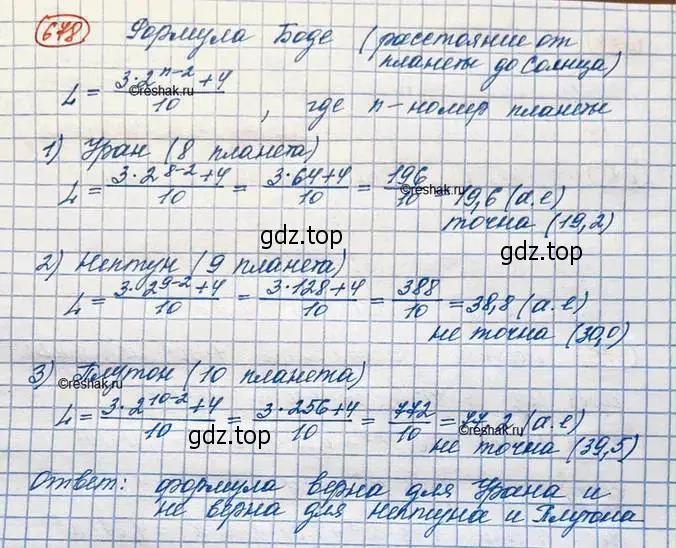 678 Формула Боде (расстояние от
планеты до Солнца)
L = (3·2^(n-2) + 4)/10 , где n – номер планеты
©reshak.ru
1) Уран (8 планета)
L = (3·2^(8-2) + 4)/10 = (3·64+4)/10 = 196/10 = 19,6 (а.е)
©reshak.ru
точна (19,2)
gdz.top
2) Нептун (9 планета)
gdz.top
L = (3·2^(9-2) + 4)/10 = (3·128+4)/10 = 388/10 = 38,8 (а.е)
не точна (30,0)
3) Плутон (10 планета)
©reshak.ru
L = (3·2^(10-2) + 4)/10 = (3·256+4)/10 = 772/10 = 77,2 (а.е)
©reshak.ru
gdz.top
не точна (39,5)
gdz.top
Ответ: формула верна для Урана и
не верна для Нептуна и Плутона